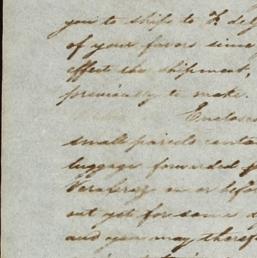 you to ship to F. de
of your favors since
effect the shipment,
previously to make.
Enclosed
small parcels conta
luggage forwarded f
Vera Cruz on or befor
out yet for some d
and you may theref